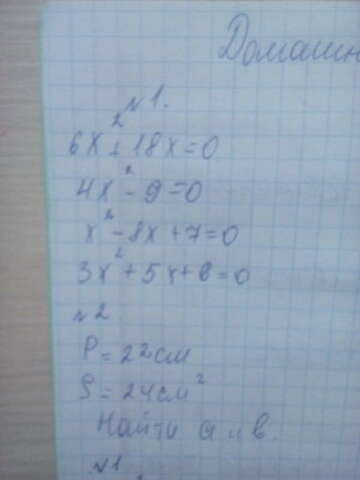 Домашн
№1.
6x²+18x=0
4x²-9=0
x²-8x+7=0
3x²+5x+6=0
№2
P=22см
S=24см²
Найти а и в.
№1